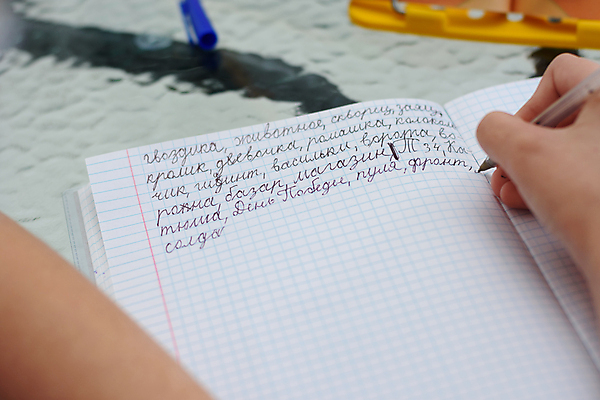 гвоздика, животное, скворец, заяц,
кролик, девочка, ромашка, колоколь
чик, гиацинт, васильки, ворота, во
рона, базар, магазин, Т 34, Ка
тюша, День Победы, пуля, фронт,
солда